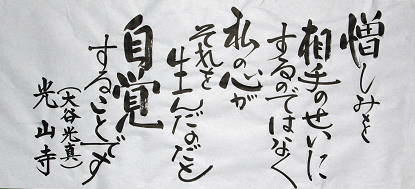 憎しみを
相手のせいに
するのではなく
私の心が
それを
生んだのだと
自覚
することです
(大谷光真)
光山寺